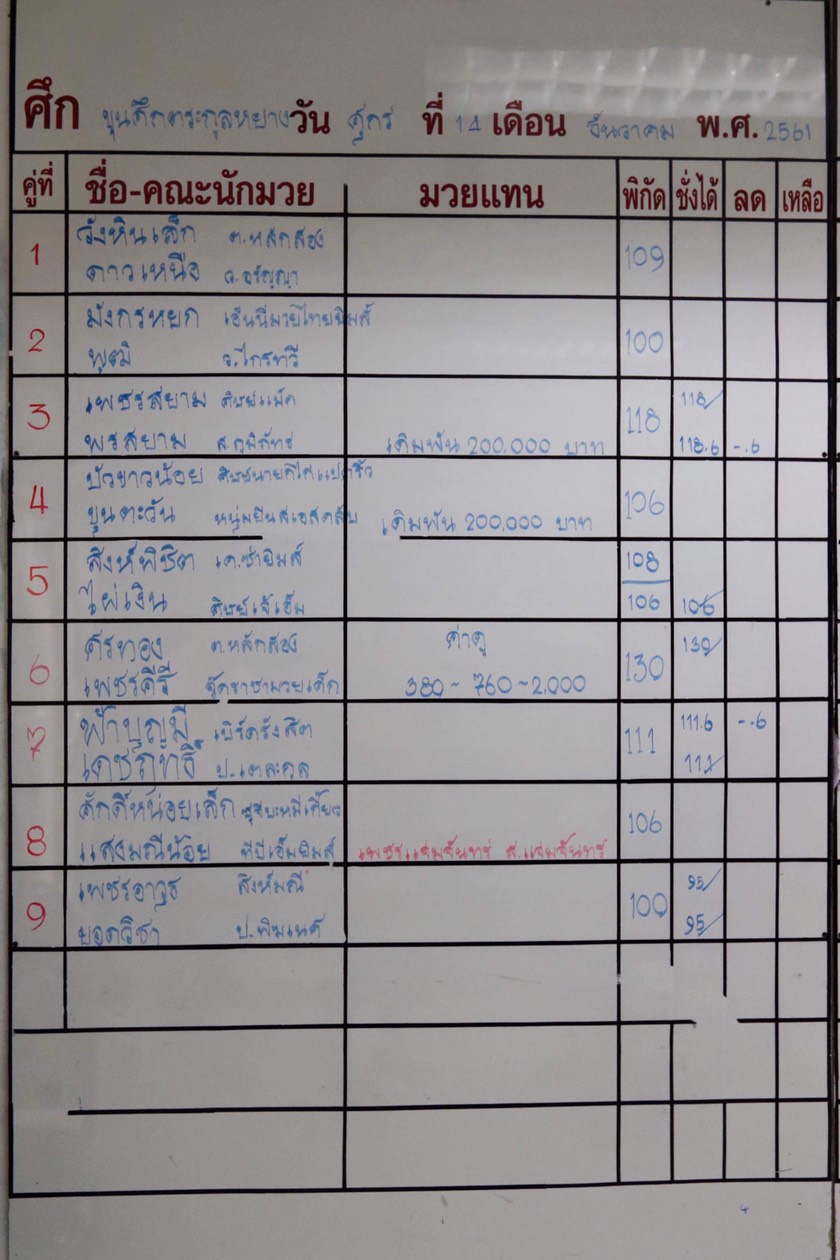 ศึก ขุนศึกตระกูลหยาง วัน ศุกร์ ที่ 14 เดือน ธันวาคม พ.ศ. 2561
คู่ที่ ชื่อ-คณะนักมวย มวยแทน พิกัด ชั่งได้ ลด เหลือ
1 วังหินเล็ก ต.หลักสอง 109
ดาวเหนือ อ.อรัญญา
2 มังกรหยก เฮ้นนี่มวยไทยยิมส์ 100
พุฒิ ว.ไกรทวี
3 เพชรสยาม ศิษย์แม็ค 118 118
พรสยาม ส.ภูมิภัทร เดิมพัน 200,000 บาท 118.6 -.6
4 บัวขาวน้อย 106
ขุนตะวัน เดิมพัน 200,000 บาท
5 สิงห์พิชิต เค.ซ่ายิมส์ 108
ไผ่เงิน ศิษย์เจ๊เอ็ม 106 106
6 ศรทอง ต.หลักสอง ค่าดู 130 130
เพชรคีรี จัดราชามวยเด็ก 380 - 760 - 2,000
7 ฟ้าบุญมี เบิร์ดรังสิต 111 111.6 -.6
เดชฤทธิ์ ป.เตละกุล 111
8 ศักดิ์หน่อยเล็ก 106
แสงมณีน้อย ทีบีเอ็มยิมส์ เพชรแจ่มจันทร์ ส.แจ่มจันทร์
9 เพชรอาวุธ สิงห์มณี 100 95
ยอดวิชา ป.พิฆเนศ 95